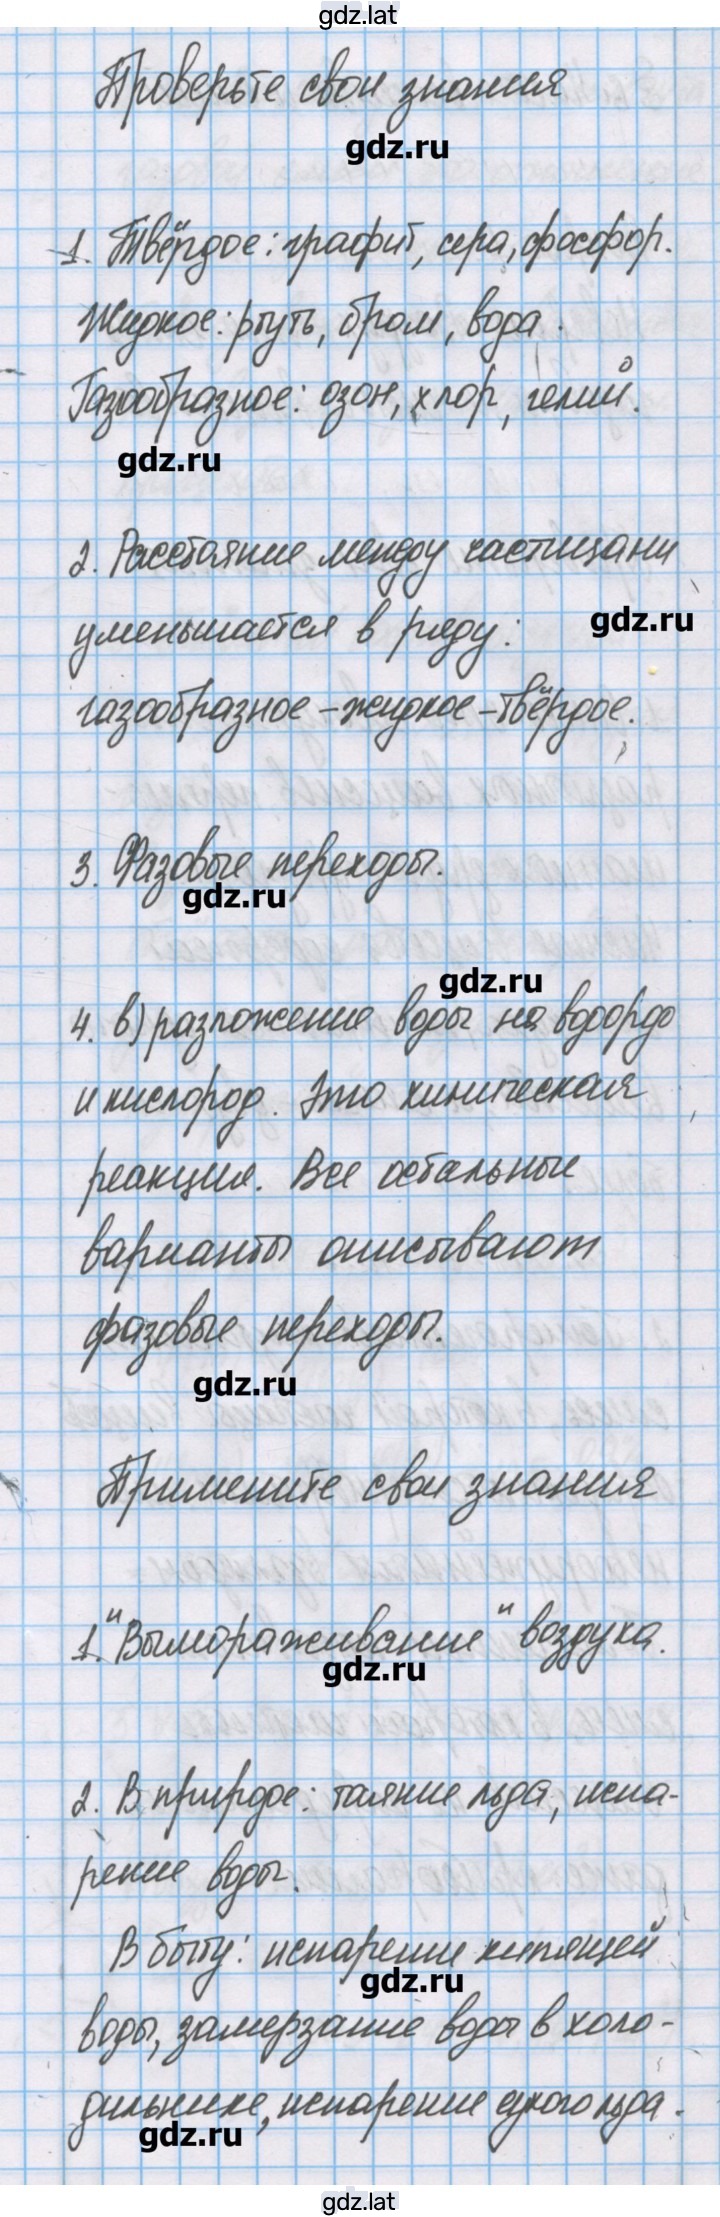 gdz.lat
Проверьте свои знания
gdz.ru
1. Твёрдое: графит, сера, фосфор.
Жидкое: ртуть, бром, вода.
Газообразное: озон, хлор, гелий.
gdz.ru
2. Расстояние между частицами
уменьшается в ряду:
gdz.ru
газообразное – жидкое – твёрдое.
3. Фазовые переходы.
gdz.ru
gdz.ru
4. в) разложение воды на водордо
и кислород. Это химическая
реакция. Все остальные
варианты описывают
фазовые переходы.
gdz.ru
Примените свои знания
1. "Вымораживание" воздуха.
gdz.ru
2. В природе: таяние льда, испа-
рение воды.
В быту: испарение кипящей
gdz.ru
воды, замерзание воды в холо-
дильнике, испарение сухого льда.
gdz.ru
gdz.lat